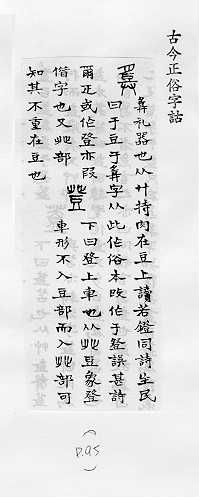 古今正俗字詁
彝礼器也从廾持肉在豆上讀若鐙同詩生民
曰于豆于彝字从此作俗本改作于登誤甚詩
爾疋或作登亦叚
借字也又癶部
登
下曰登上車也从癶豆象登
車形不入豆部而入癶部可
知其不重在豆也
(P.95)